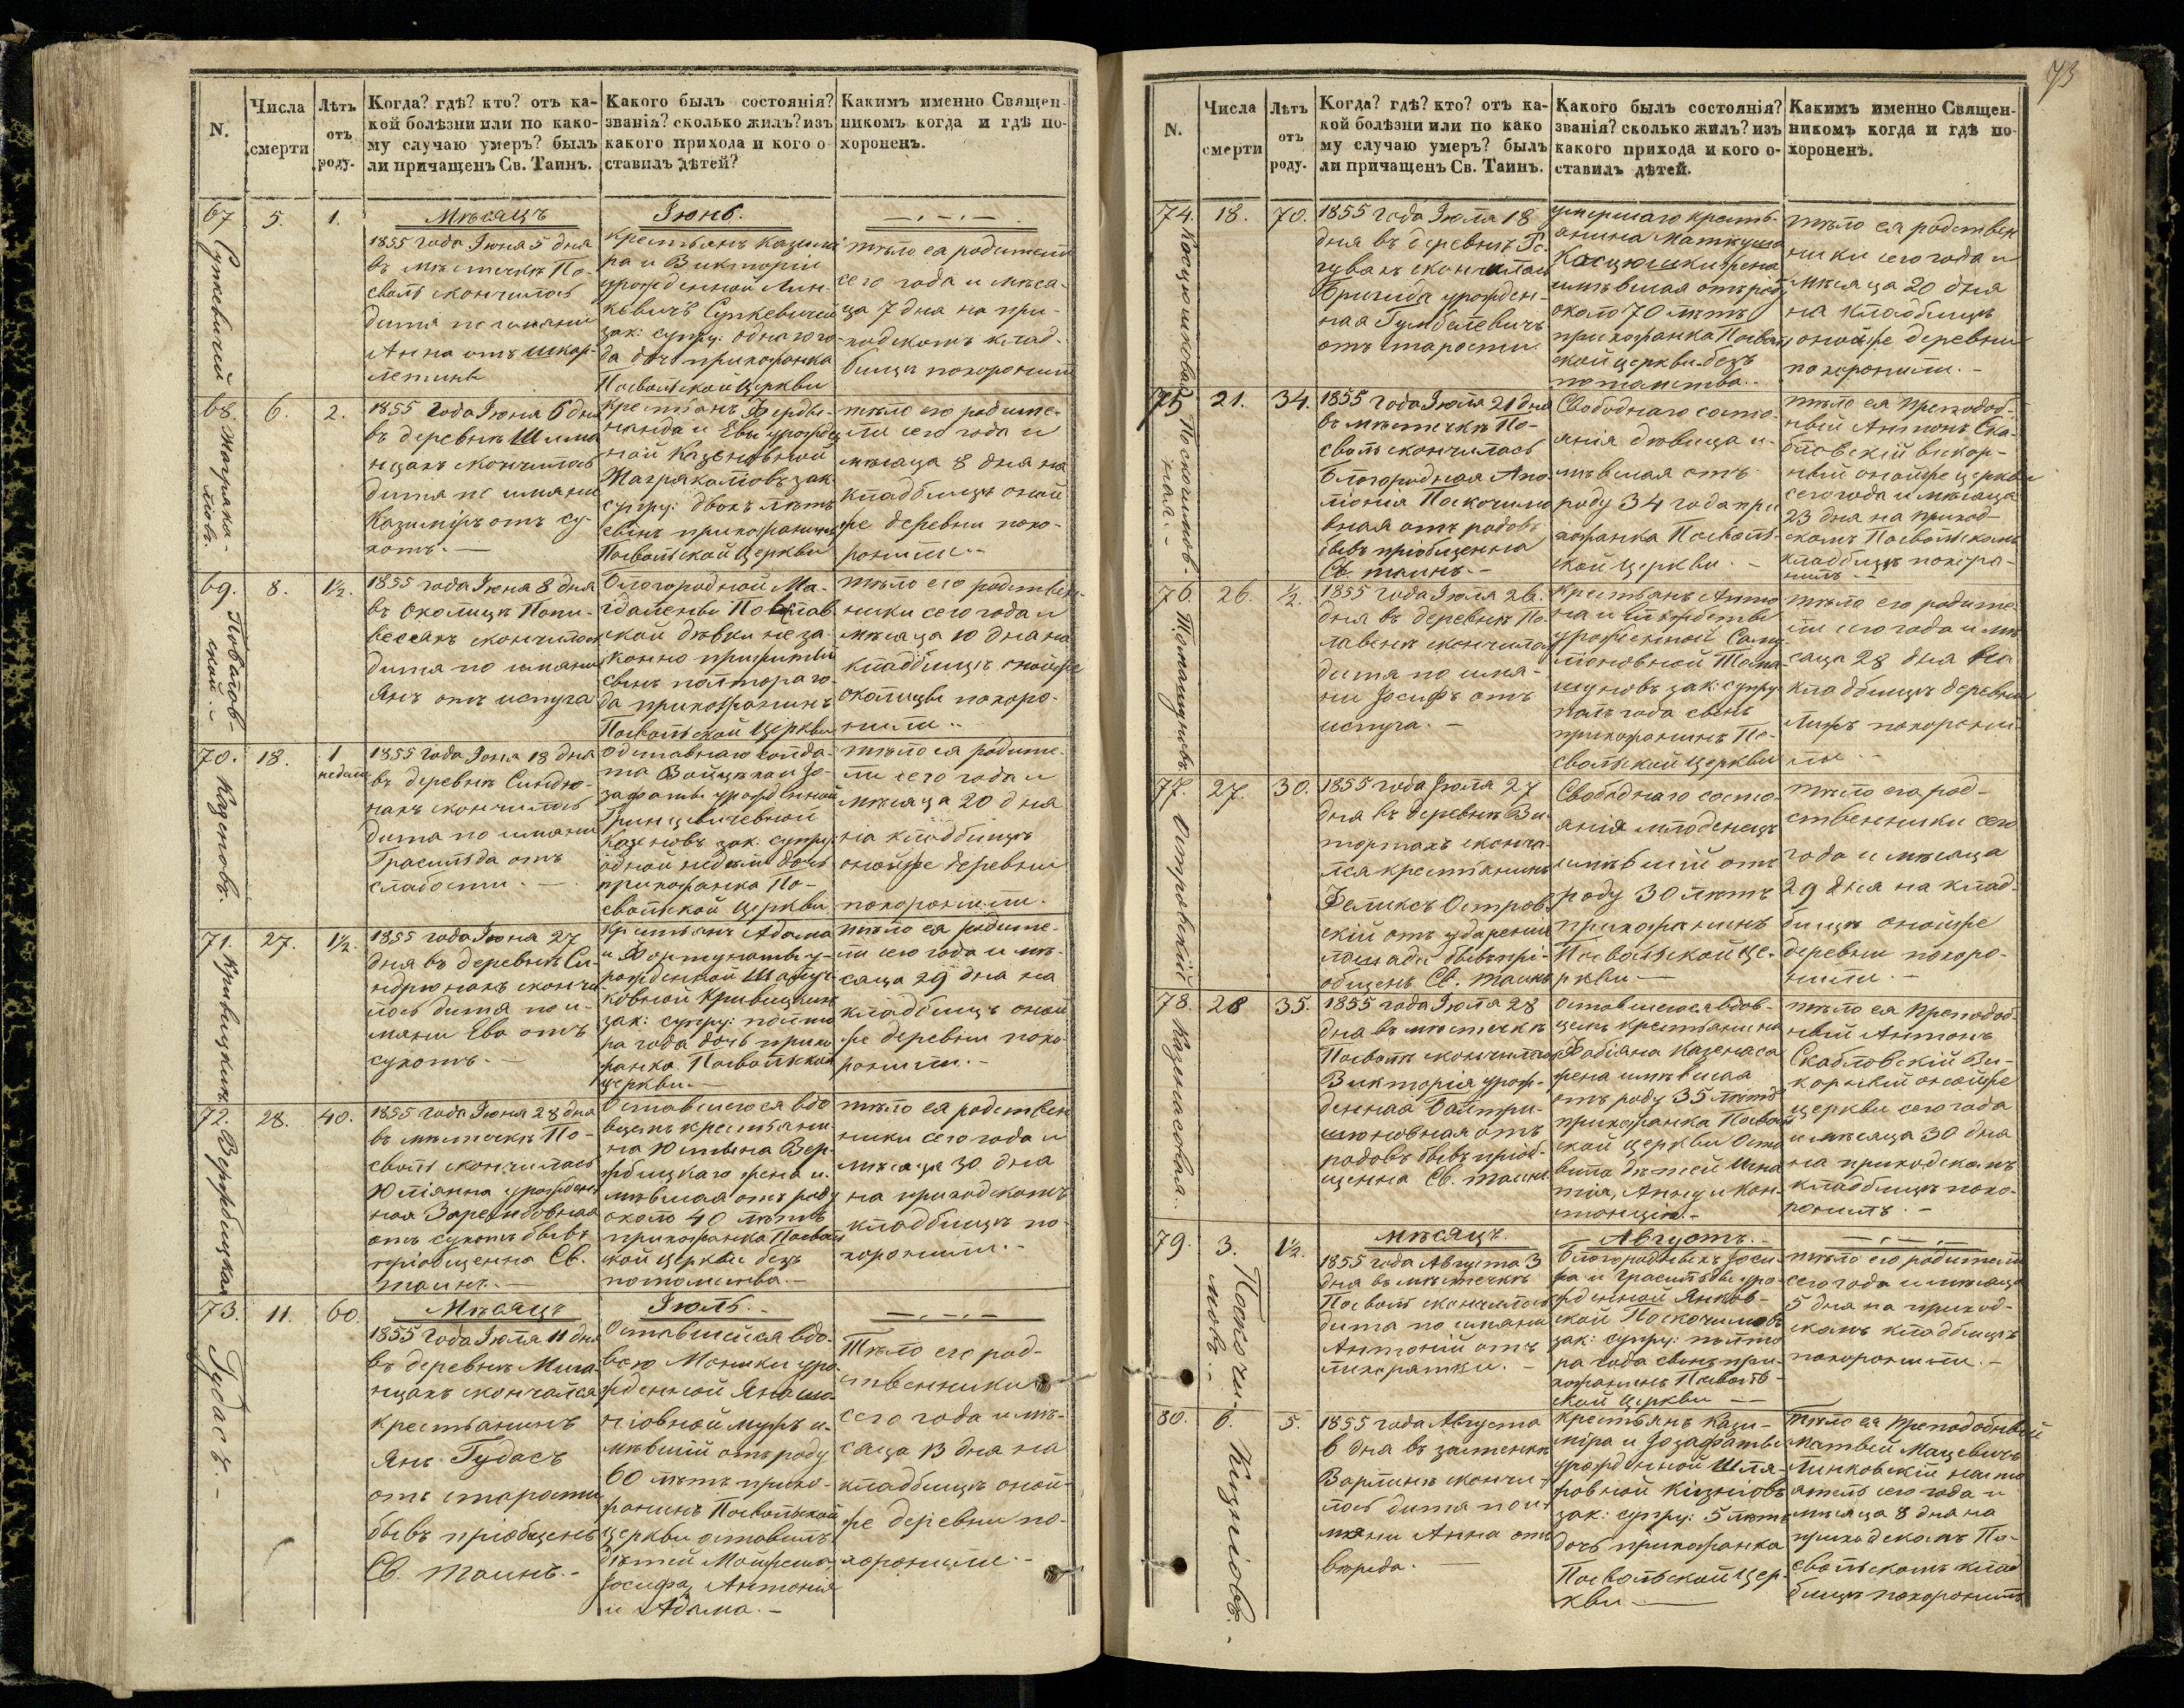 73
N.
Числа
смерти
Лѣтъ
отъ
роду.
Когда? гдѣ? кто? отъ ка-
кой болѣзни или по како-
му случаю умеръ? былъ
ли причащенъ Св. Таинъ.
Какого былъ состоянія?
званія? сколько жилъ? изъ
какого прихода и кого о-
ставилъ дѣтей?
Какимъ именно Священ-
никомъ когда и гдѣ по-
хороненъ.
67
5.
1.
Мѣсяцъ
1855 года Іюня 5 дня
въ мѣстечкѣ По-
сволѣ скончилось
дитя по имяни
Анна отъ шкар-
летины
Іюнь.
крестьянъ Казими-
ра и Викторіи
урожденной Лин-
кевичъ Сункевичей
зак: супру: одного го-
да дочь прихожанка
Посвольской Церкви
тѣло ея родители
сего года и мѣся-
ца 7 дня на при-
ходскомъ клад-
бищѣ похоронили
68
6.
2.
1855 года Іюня 6 дня
въ деревнѣ Шима-
нцахъ скончилось
дитя по имяни
Казиміръ отъ су-
хотъ. —
крестьянъ Ферды-
нанда и Евы урожден-
ной Казеновной
зак:
супру: двохъ лѣтъ
сынъ прихожанинъ
Посвольской Церкви
тѣло его родите-
ли сего года и
мѣсяца 8 дня на
кладбищѣ оной
же деревни похо-
ронили. -
69.
8.
1½.
1855 года Іюня 8 дня
въ околицѣ Попи-
вессахъ скончилось
дитя по имяни
Янъ отъ испуга
Благородной Ма-
гдалены
дѣвки неза-
конно прижитый
сынъ полтора го-
да прихожанинъ
Посвольской Церкви
тѣло его родствен-
ники сего года и
мѣсяца 10 дня на
кладбищѣ онойже
околицы похоро-
нили ..
70.
18.
1
недели
1855 года Іюня 18 дня
въ деревнѣ Синдрю-
нахъ скончилось
дитя по имяни
Грасильда отъ
слабости. —
отставнаго солда-
та Войцѣха и Іо-
зафаты урожденной
Гринцевичевной
Казеновъ зак. супру:
одной недѣли дочь
прихожанка По-
свольской Церкви
тѣло ея родите-
ли сего года и
мѣсяца 20 дня
на кладбищѣ
онойже деревни
похоронили.
71.
27.
1½.
1855 года Іюня 27
дня въ деревнѣ Си-
ндрюнахъ скончи-
лось дитя по и-
мяни Ева отъ
сухотъ. —
крестьянъ Адама
и Фортунаты у-
рожденной
зак: супру: полто-
ра года дочь прихо-
жанка Посвольской
церкви. —
тѣло ея родите-
ли сего года и мѣ-
сяца 29 дня на
кладбищѣ оной
же деревни похо-
ронили. -
72.
28.
40.
1855 года Іюня 28 дня
въ мѣстечкѣ По-
сволѣ скончилась
Юліянна урожден-
ная
отъ сухотъ бывъ
пріобщенна Св.
таинъ. —
Оставшегося вдо-
вцемъ крестьяни-
на Юстына Вер-
жбицкаго жена и-
мѣвшая отъ роду
около 40 лѣтъ
прихожанка Посволь-
ской церкви безъ
потомства. —
тѣло ея родствен-
ники сего года и
мѣсяца 30 дня
на приходскомъ
кладбищѣ по-
хоронили. -
73.
11.
60.
Мѣсяцъ
1855 года Іюля 11 дня
въ деревнѣ Мига-
нцахъ скончался
крестьянинъ
Янъ Гудасъ
отъ старости
бывъ пріобщенъ
Св. таинъ. -
Іюль.
Оставшейся вдо-
вою Моники уро-
жденной
мужъ и-
мѣвшій отъ роду
60 лѣтъ прихо-
жанинъ Посвольской
церкви оставилъ
дѣтей
Іосифа, Антонія
и Адама. -
Тѣло его род-
ственники
сего года и мѣ-
сяца 13 дня на
кладбищѣ оной-
же деревни по-
хоронили. -
Гудасъ. -
N.
Числа
смерти
Лѣтъ
отъ
роду.
Когда? гдѣ? кто? отъ ка-
кой болѣзни или по како
му случаю умеръ? былъ
ли причащенъ Св. Таинъ.
Какого былъ состоянія?
званія? сколько жилъ? изъ
какого прихода и кого о-
ставилъ дѣтей.
Какимъ именно Священ-
никомъ когда и гдѣ по-
хороненъ.
74.
18.
70.
1855 года Іюля 18
дня въ деревнѣ
скончилась
Бригида урожден-
ная Гумбелевичъ
отъ старости
умершаго кресть-
янина Матеуша
Косцюшки жена
имѣвшая отъ роду
около 70 лѣтъ
прихожанка Посволь-
ской церкви безъ
потомства. -
тѣло ея родствен-
ники сего года и
мѣсяца 20 дня
на кладбищѣ
онойже деревни
похоронили. -
75.
21.
34.
1855 года Іюля 21 дня
въ мѣстечкѣ По-
сволѣ скончилась
Благородная Апо-
лонія Поскочимо-
вная отъ родовъ
бывъ пріобщенна
Св. таинъ. -
Свободнаго состо-
янія дѣвица и-
мѣвшая отъ
роду 34 года при-
хожанка Посволь-
ской Церкви. -
тѣло ея преподоб-
ный Антонъ Ска-
бловскій викар-
ный онойже церкви
сего года и мѣсяца
23 дня на приход-
скомъ Посвольскомъ
кладбищѣ похоро-
нилъ. -
76.
26.
½.
1855 года Іюля 26.
дня въ деревнѣ По-
лавенѣ скончилось
дитя по имя-
ни Іосифъ отъ
испуга. —
Крестьянъ Анто-
на и Елжбеты
урожденной
зак: супру:
полъ года сынъ
прихожанинъ По-
свольской церкви
тѣло его родите-
ли сего года и мѣ-
сяца 28 дня на
кладбищѣ деревни
похорони-
ли. -
77.
27.
30.
1855 года Іюля 27
дня въ деревнѣ Ви-
торжахъ сконча-
лся крестьянинъ
Феликсъ Остров-
скій отъ ударенія
лошади бывъ прі-
общенъ Св. таинъ
Свободнаго состо-
янія младенецъ
имѣвшій отъ
роду 30 лѣтъ
прихожанинъ
Посвольской це-
ркви —
тѣло его род-
ственники сего
года и мѣсяца
29 дня на клад-
бищѣ онойже
деревни похоро-
нили. -
Островскій
78.
28
35.
1855 года Іюля 28
дня въ мѣстечкѣ
Посволѣ скончилась
Викторія урож-
денная
отъ
родовъ бывъ пріоб-
щенна Св. таинъ
Оставшегося вдов-
цемъ крестьянина
Фабіяна Казенаса
жена имѣвшая
отъ роду 35 лѣтъ
прихожанка Посволь-
ской церкви оста-
вила дѣтей Игна-
тія, Анну и Кон-
станцію. -
тѣло ея преподоб-
ный Антонъ
Скабловскій Ви-
карный онойже
церкви сего года
и мѣсяца 30 дня
на приходскомъ
кладбищѣ похо-
ронилъ. -
Казенасовая.
79.
3.
1½.
Мѣсяцъ.
1855 года Августа 3
дня въ мѣстечкѣ
Посволѣ скончилось
дитя по имяни
Антоній отъ
лихорадки. -
Августъ. -
Благородныхъ Іоси-
фа и Грасильды уро-
жденной Янков-
ской Поскочимовъ
зак: супру: полто-
ра года сынъ при-
хожанинъ Посволь-
ской Церкви —
тѣло его родители
сего года и мѣсяца
5 дня на приход-
скомъ кладбищѣ
похоронили. -
Поскочи-
мовъ. -
80.
6.
5.
1855 года Августа
6 дня въ застенкѣ
Ворлинѣ скончи-
лось дитя по и-
мяни Анна отъ
вореда.
крестьянъ Кази-
міра и Іозафаты
урожденной Шля-
ровной Кизніовъ
зак: супру: 5 лѣтъ
дочь прихожанка
Посвольской Цер-
кви —
тѣло ея преподобный
Матвей Мацевичъ
Линковскій насто-
ятель сего года и
мѣсяца 8 дня на
приходскомъ По-
свольскомъ клад-
бищѣ похоронилъ
Кизніовъ. -